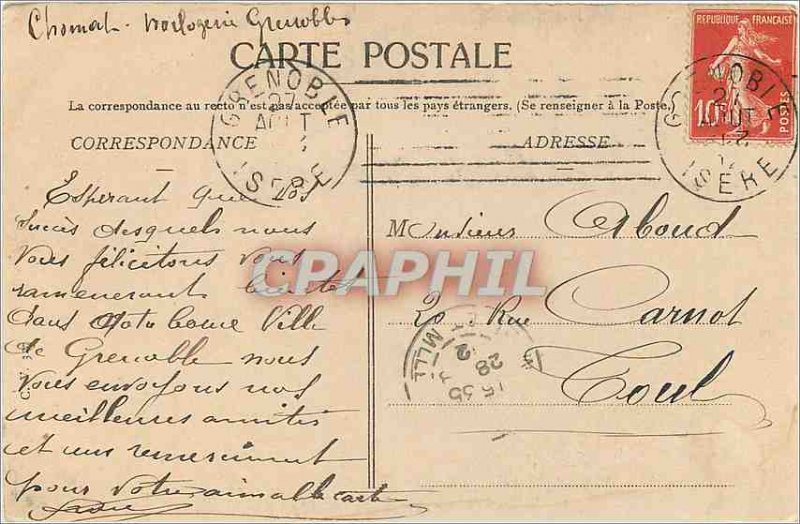 Chomat - horlogerie Grenoble
CARTE POSTALE
REPUBLIQUE FRANÇAISE
10c
POSTES
GRENOBLE
27
AOUT
ISERE
La correspondance au recto n'est pas acceptée par tous les pays étrangers. (Se renseigner à la Poste.)
CORRESPONDANCE
ADRESSE
GRENOBLE
27
AOUT
ISERE
Esperant que vos
succès desquels nous
vous félicitons vous
rameneront bientot
dans notre bonne Ville
de Grenoble nous
vous envoyons nos
meilleures amitiés
et un remerciment
pour votre aimable carte
Monsieur Aboud
20 Rue Carnot
Toul
28
15 35
CPARAMA
CPAPHIL